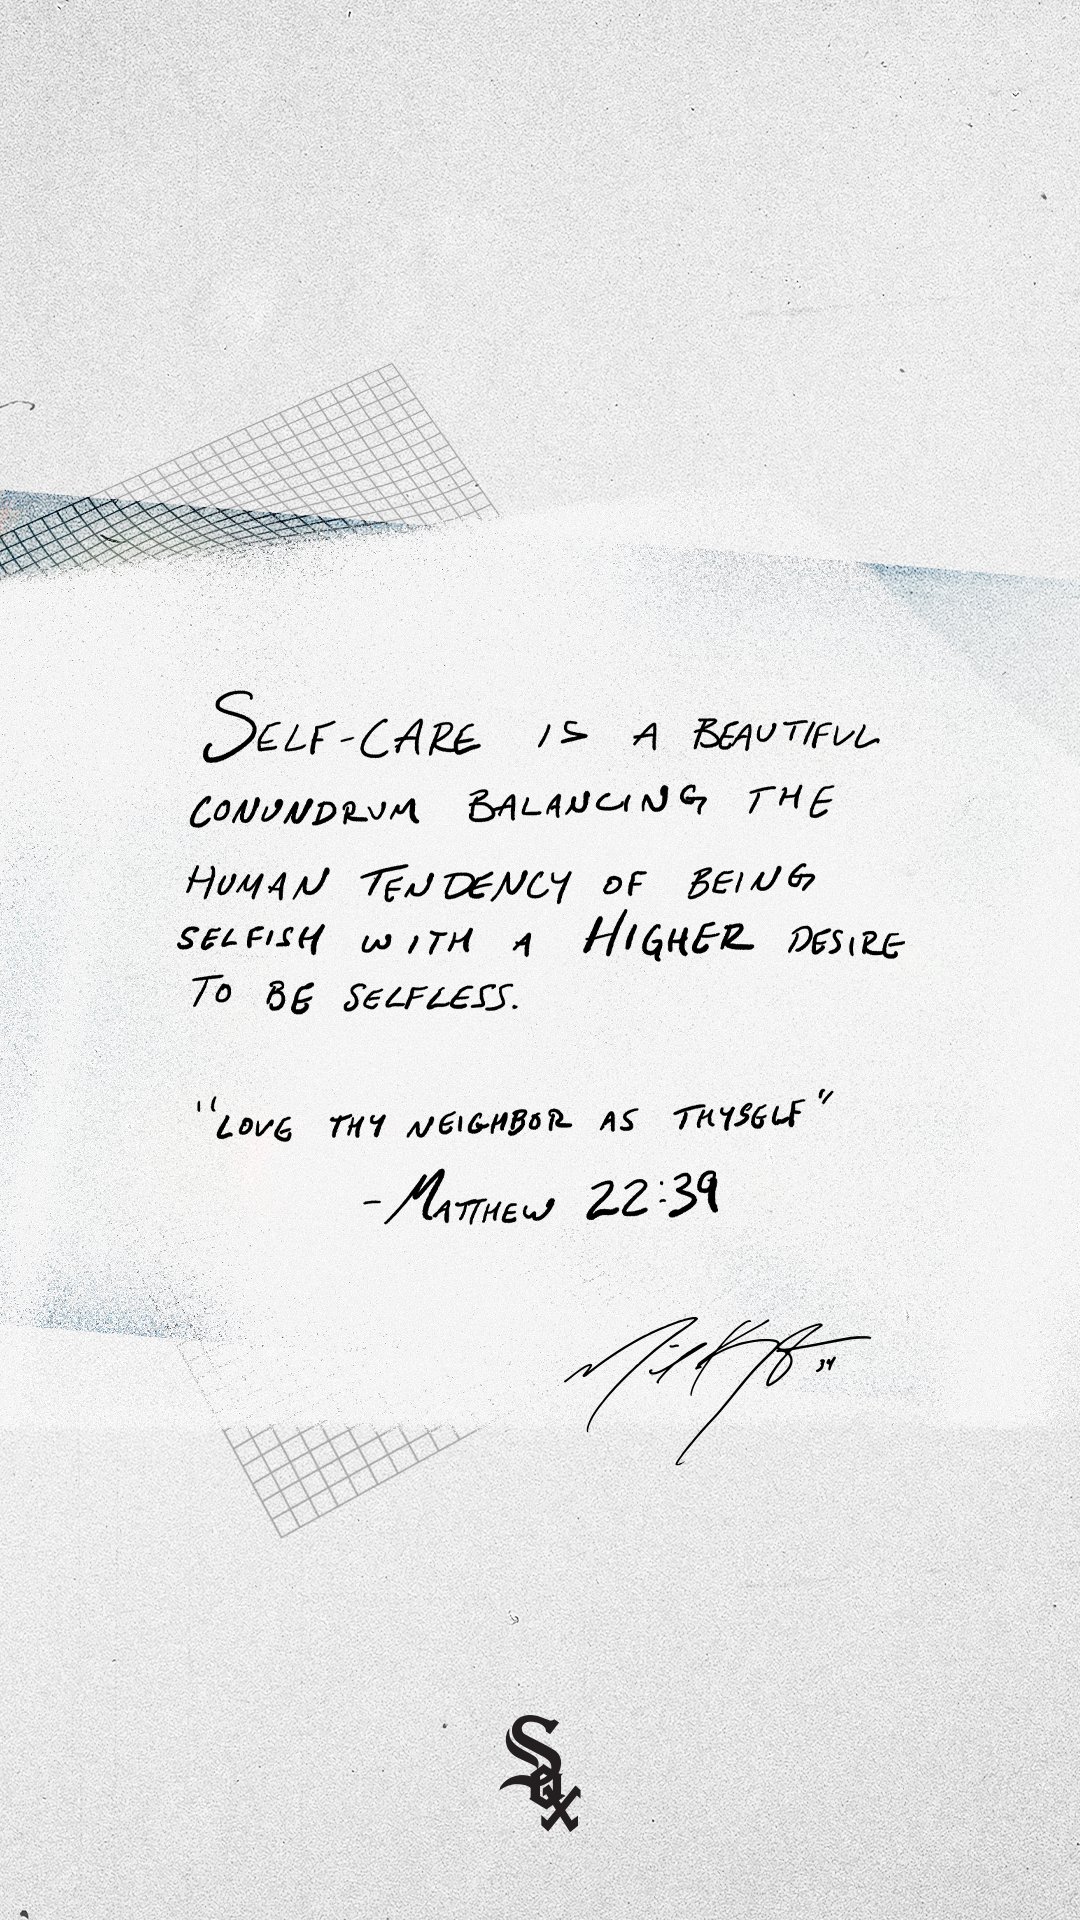 SELF-CARE IS A BEAUTIFUL
CONUNDRUM BALANCING THE
HUMAN TENDENCY OF BEING
SELFISH WITH A HIGHER DESIRE
TO BE SELFLESS.
"LOVE THY NEIGHBOR AS THYSELF"
- MATTHEW 22:39
34
Sox